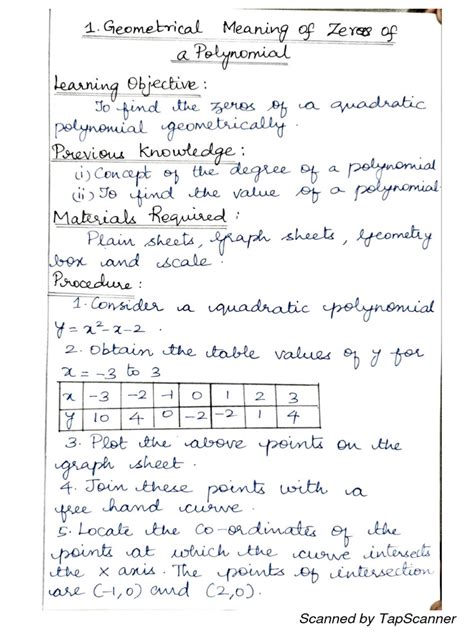 1. Geometrical Meaning of Zeros of
a Polynomial
Learning Objective :
To find the zeros of a quadratic
polynomial geometrically.
Previous Knowledge :
(i) Concept of the degree of a polynomial
(ii) To find the value of a polynomial
Materials Required :
Plain sheets, graph sheets, geometry
box and scale.
Procedure :
1. Consider a quadratic polynomial
y = x²-x-2.
2. Obtain the table values of y for
x = -3 to 3
x -3 -2 -1 0 1 2 3
y 10 4 0 -2 -2 1 4
3. Plot the above points on the
graph sheet.
4. Join these points with a
free hand curve.
5. Locate the co-ordinates of the
points at which the curve intersects
the x axis. The points of intersection
are (-1,0) and (2,0).
Scanned by TapScanner